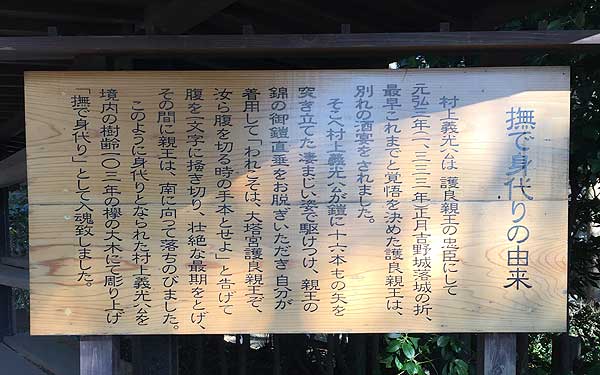 撫で身代りの由来
村上義光公は護良親王の忠臣にして
元弘三年（一、三三三年）正月吉野城落城の折、
最早これまでと覚悟を決めた護良親王は、
別れの酒宴をされました。
そこへ村上義光公が鎧に十六本もの矢を
突き立てた凄まじい姿で駆けつけ、親王の
錦の御鎧直垂をお脱ぎいただき自分が
着用して「われこそは、大塔宮護良親王ぞ、
汝ら腹を切る時の手本とせよ」と告げて
腹を一文字に掻き切り、壮絶な最期をとげ、
その間に親王は、南に向って落ちのびました。
このように身代りとなられた村上義光公を
境内の樹齢一〇三年の欅の大木にて彫り上げ
「撫で身代り」として入魂致しました。